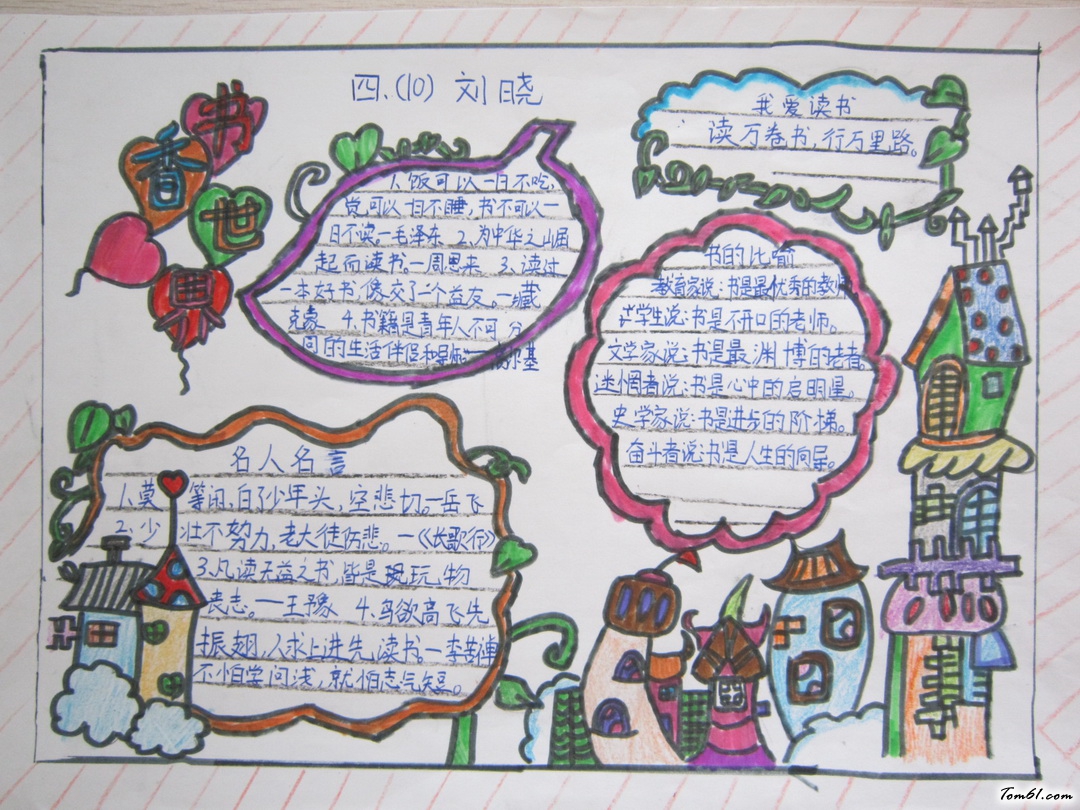 四.(10) 刘晓
书香世界
我爱读书
读万卷书,行万里路。
1.饭可以一日不吃,
觉可以一日不睡,书不可以一
日不读。—毛泽东 2.为中华之崛
起而读书。—周恩来 3.读过
一本好书,像交了一个益友。—臧
克家 4.书籍是青年人不可分
的生活伴侣和导师。—高尔基
书的比喻
教育家说:书是最优秀的教师
学生说:书是不开口的老师。
文学家说:书是最渊博的读者。
迷惘者说:书是心中的启明星。
史学家说:书是进步的阶梯。
奋斗者说:书是人生的向导。
名人名言
1.莫等闲,白了少年头,空悲切。—岳飞
2.少壮不努力,老大徒伤悲。—《长歌行》
3.凡读无益之书,皆是玩物
丧志。—王豫 4.鸟欲高飞先
振翅,人求上进先读书。—李苦禅
不怕学问浅,就怕志气短。
Tom61.com